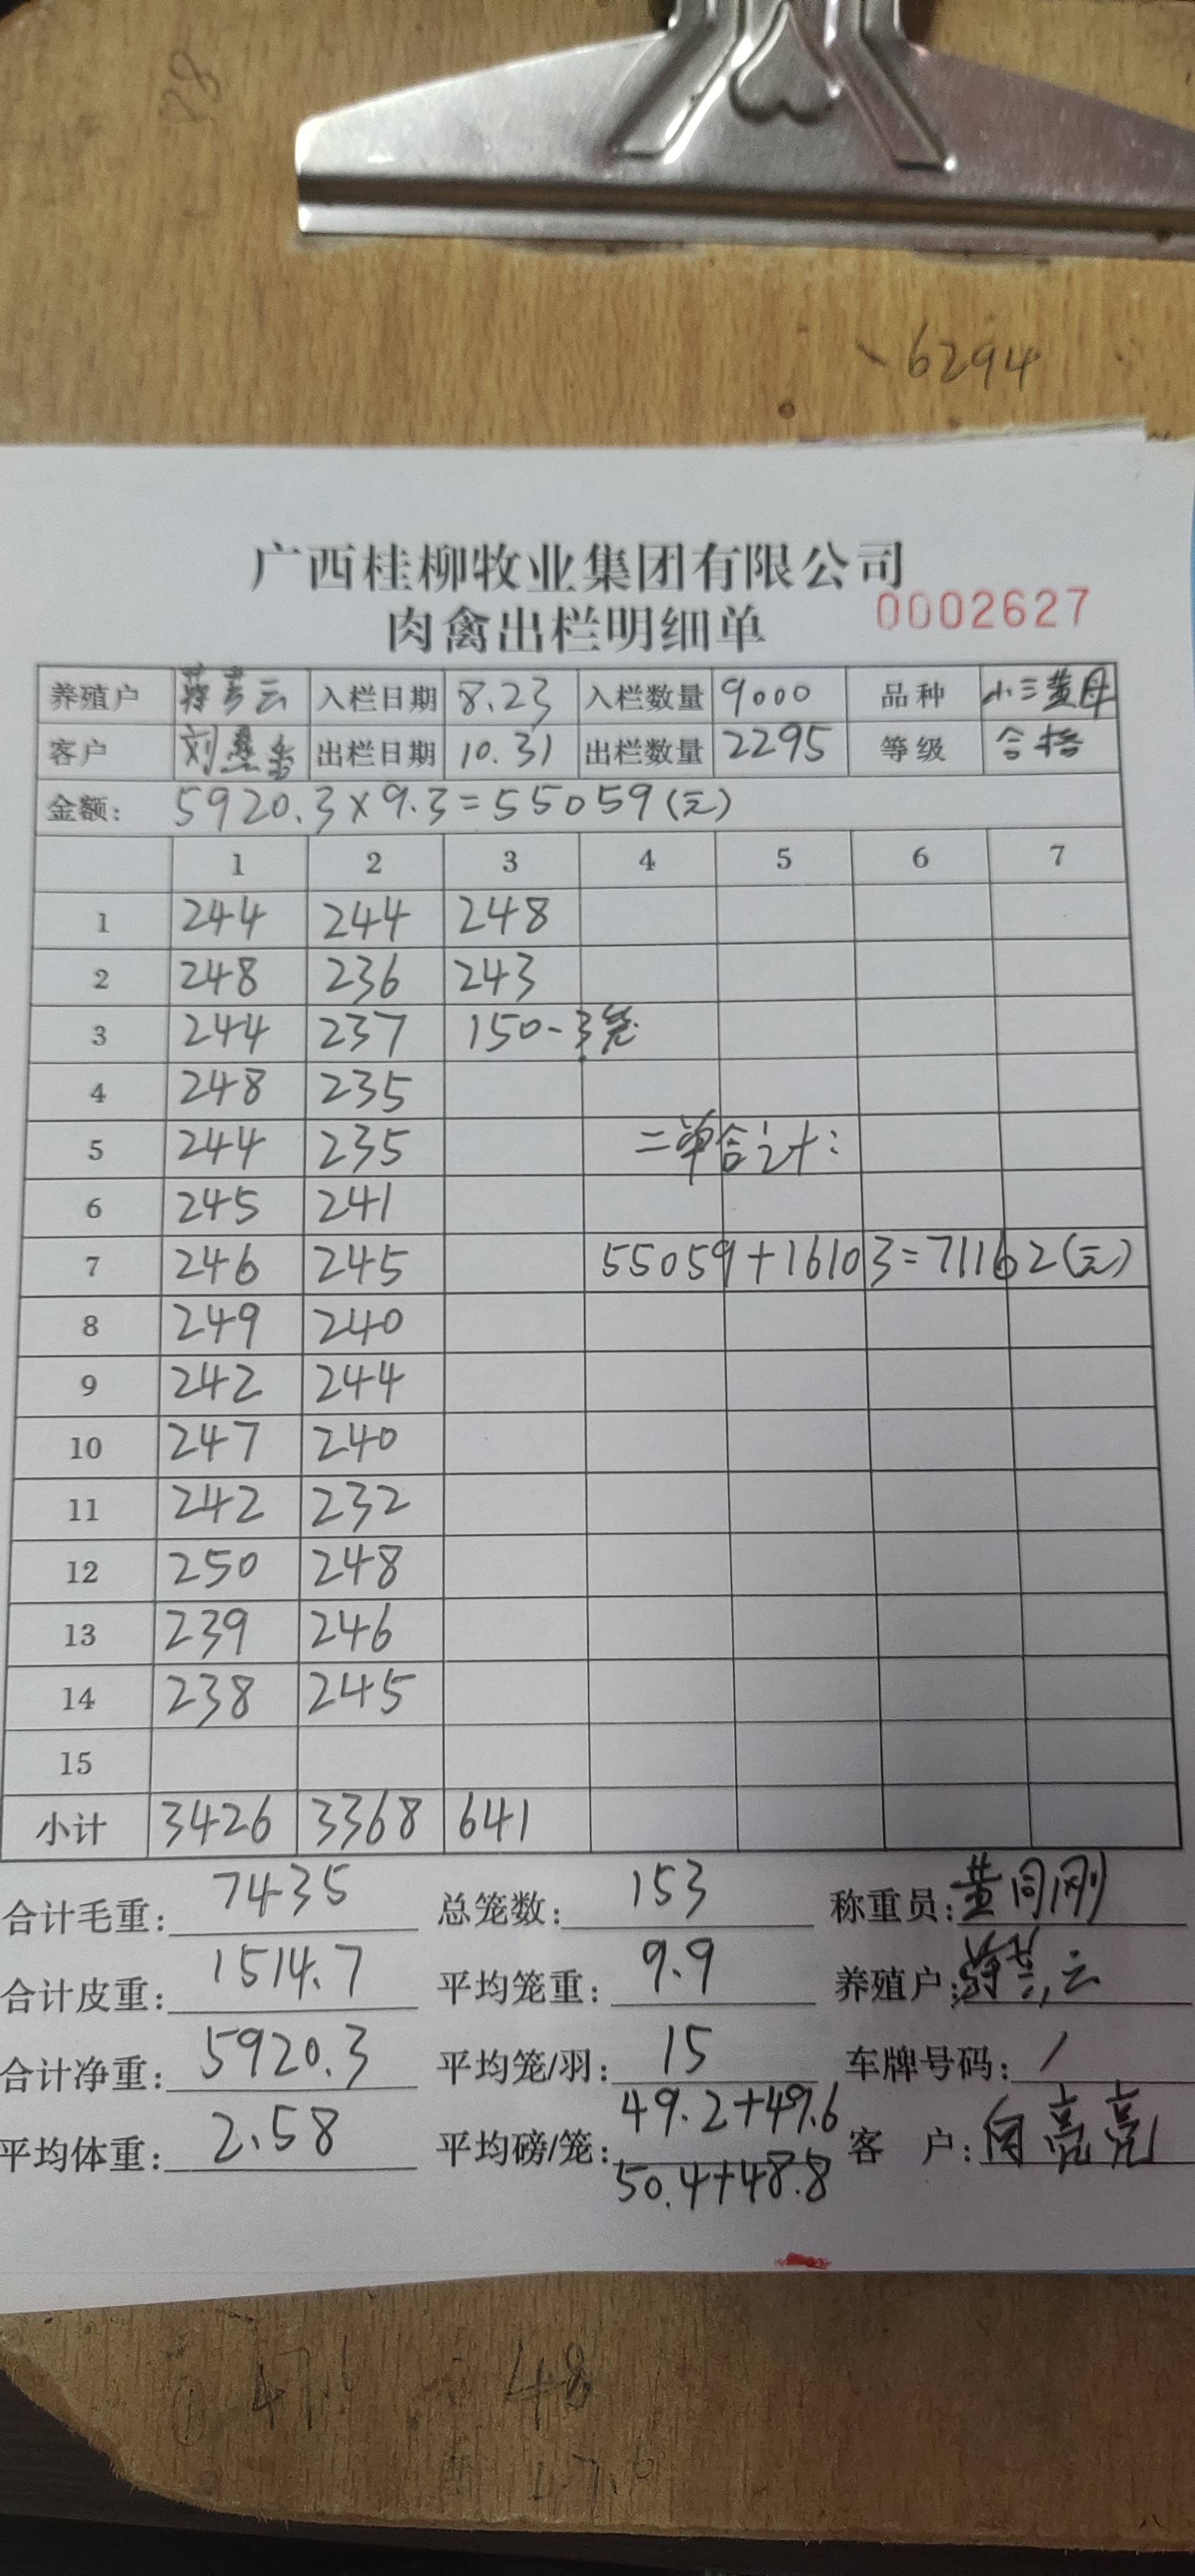 88
6294
广西桂柳牧业集团有限公司
肉禽出栏明细单 0002627
养殖户 云 入栏日期 8.23 入栏数量 9000 品种 小三黄母
客户 刘 出栏日期 10.31 出栏数量 2295 等级 合格
金额: 5920.3×9.3=55059(元)
1 2 3 4 5 6 7
1 244 244 248
2 248 236 243
3 244 237 150-3笼
4 248 235
5 244 235 二单合计:
6 245 241
7 246 245 55059+16103=71162(元)
8 249 240
9 242 244
10 247 240
11 242 232
12 250 248
13 239 246
14 238 245
15
小计 3426 3368 641
合计毛重: 7435 总笼数: 153 称重员: 黄同刚
合计皮重: 1514.7 平均笼重: 9.9 养殖户: 云
合计净重: 5920.3 平均笼/羽: 15 车牌号码: /
平均体重: 2.58 平均磅/笼: 49.2+49.6 50.4+48.8 客 户: 向亮亮
48
47.6